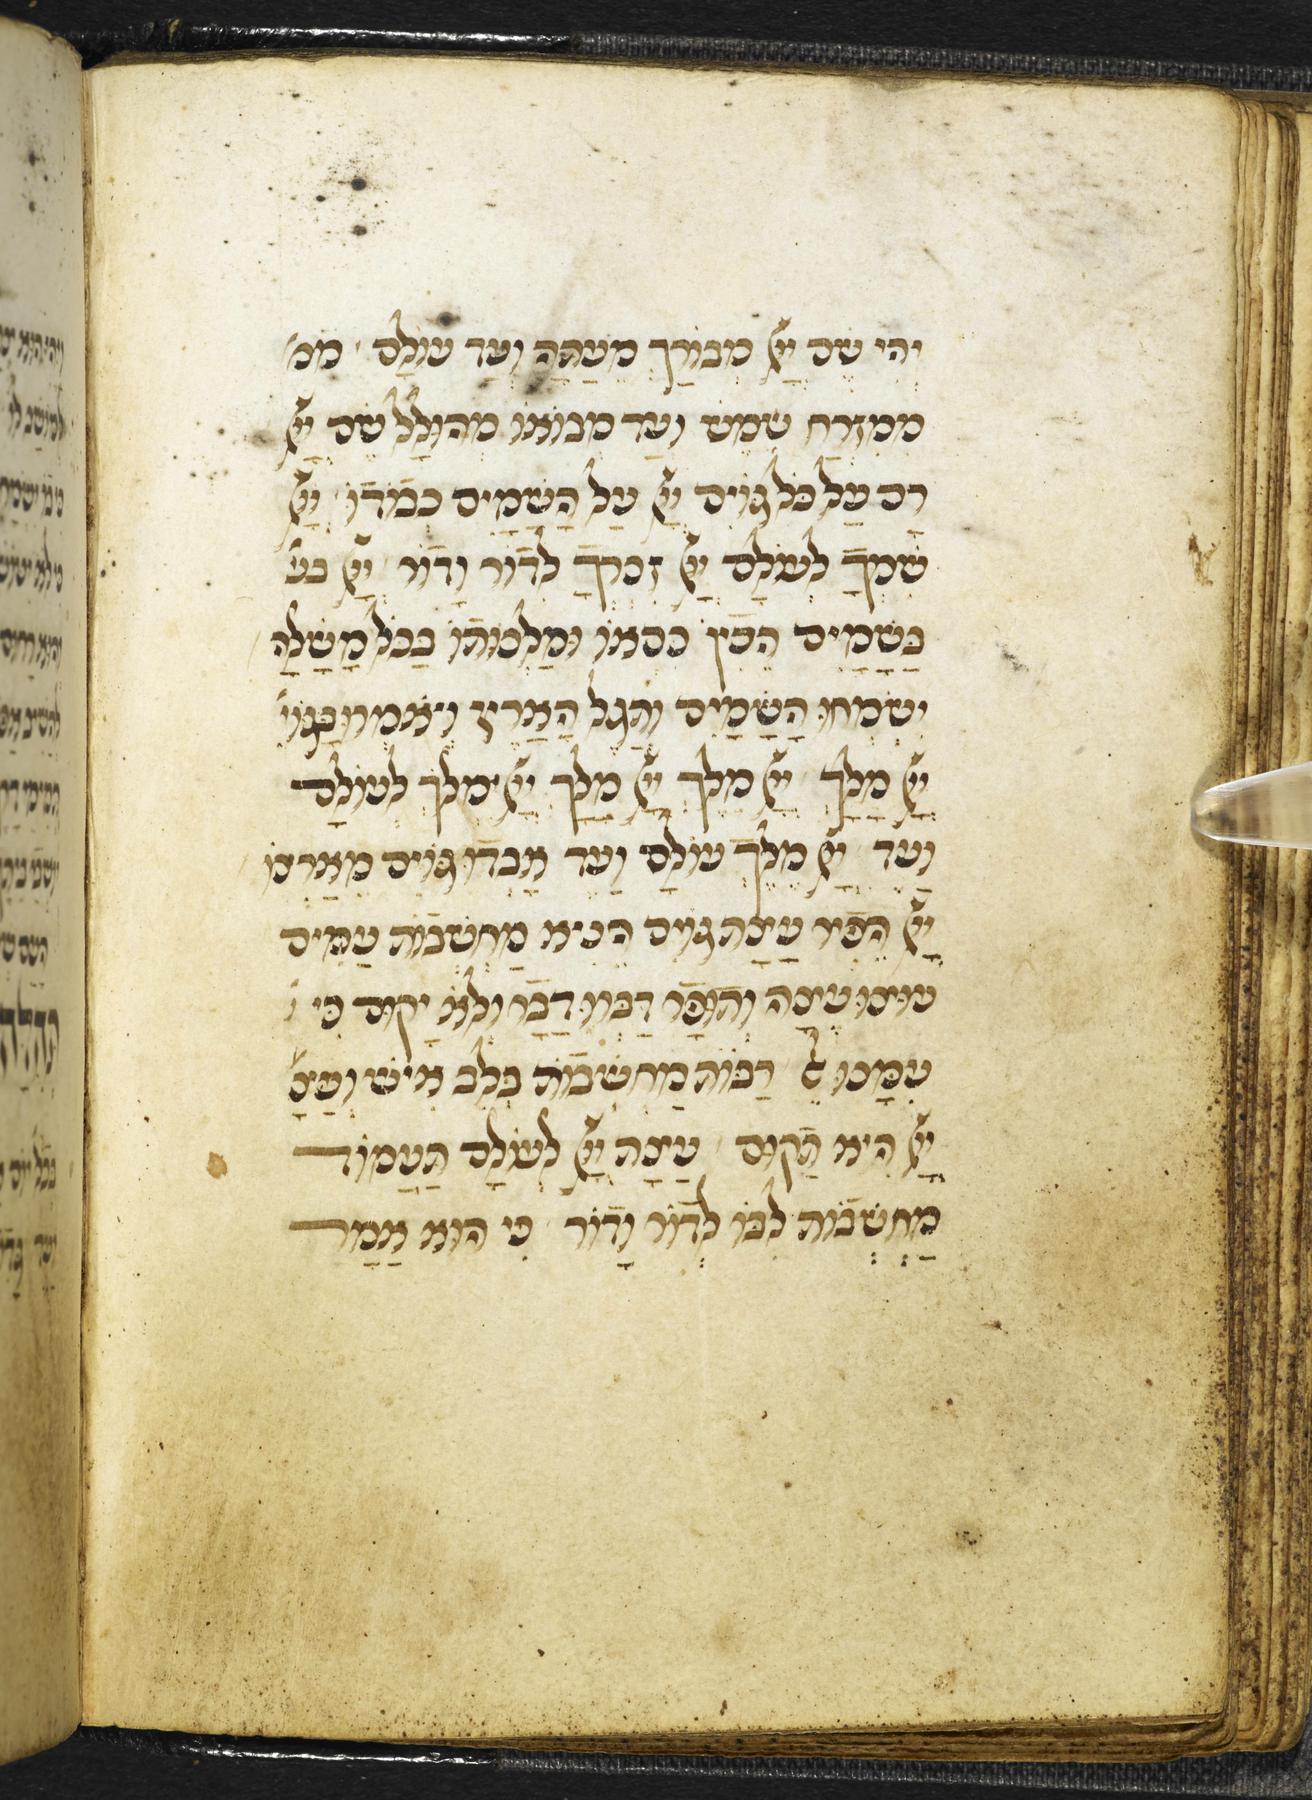 יְהִי שֵׁם יְיָ מְבוֹרָךְ מֵעַתָּה וְעַד עוֹלָם מִמִ
מִמִּזְרַח שֶׁמֶשׁ וְעַד מְבוֹאוֹ מְהוּלָּל שֵׁם יְיָ
רָם עַל כׇּל גּוֹיִם יְיָ עַל הַשָּׁמַיִם כְּבוֹדוֹ יְיָ
שִׁמְךָ לְעוֹלָם יְיָ זִכְרְךָ לְדוֹר וָדוֹר יְיָ בש
בַּשָּׁמַיִם הֵכִין כִּסְאוֹ וּמַלְכוּתוֹ בַּכֹּל מָשָׁלָה
יִשְׂמְחוּ הַשָּׁמַיִם וְתָגֵל הָאָרֶץ וְיֹאמְרוּ בַגּוֹי
יְיָ מֶלֶךְ יְיָ מֶלֶךְ יְיָ מָלָךְ יְיָ יִמְלֹךְ לְעוֹלָם
וָעֶד יְיָ מֶלֶךְ עוֹלָם וָעֶד אָבְדוּ גּוֹיִם מֵאַרְצוֹ
יְיָ הֵפִיר עֲצַת גּוֹיִם הֵנִיא מַחְשְׁבוֹת עַמִּים
עוּצוּ עֵצָה וְתוּפָר דַּבְּרוּ דָבָר וְלֹא יָקוּם כִּי
עִמָּנוּ אֵל רַבּוֹת מַחֲשָׁבוֹת בְּלֶב אִישׁ וַעֲצַ
יְיָ הִיא תָקוּם עֲצַת יְיָ לְעוֹלָם תַּעֲמוֹד
מַחְשְׁבוֹת לִבּוֹ לְדוֹר וָדוֹר כִּי הוּא אָמַר